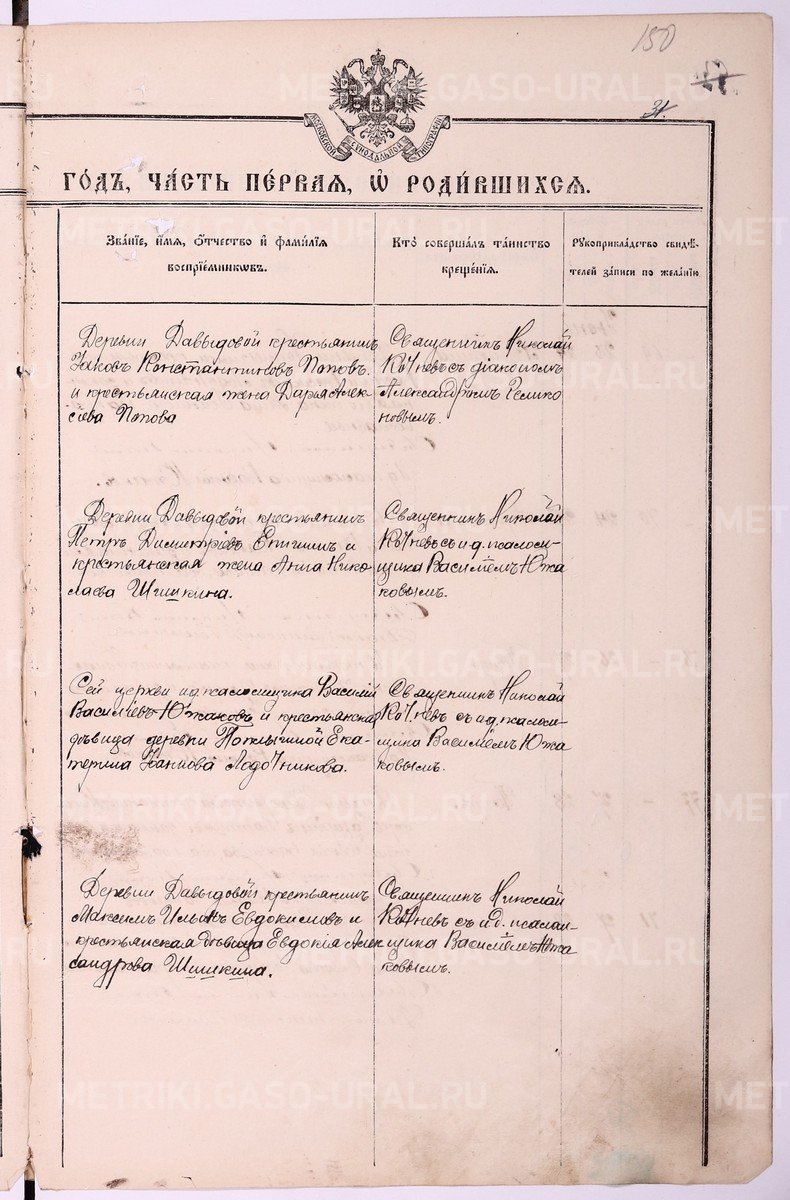 150
31.
МОСКОВСКОЙ СѴНОДАЛЬНОЙ ТИПОГРАФІИ
ГО́ДЪ, ЧА́СТЬ ПЕ́РВАЯ, Ѽ РОДИ́ВШИХСѦ.
Зва́ніе, и́мя, о́тчество и҆ фами́лїѧ
воспріе́мникѡвъ.
Кто̀ соверша́лъ та́инство
креще́нїѧ.
Рꙋкоприкла́дство свидѣ́-
телей за́писи по жела́нію
Деревни Давыдовой крестьянинъ
Іаковъ Константиновъ Поповъ.
и крестьянская жена Дарья Алек-
сіева Попова
Священникъ Николай
Кочневъ съ діакономъ
Александромъ Гелико
новымъ.
Деревни Давыдовой крестьянинъ
Петръ Димитріевъ Епишинъ и
крестьянская жена Анна Нико-
лаева Шишкина.
Священникъ Николай
Кочневъ съ и.д. псалом-
щика Василіемъ Южа
ковымъ.
Сей церкви и.д. псаломщика Василій
Василіевъ Южаковъ и крестьянская
дѣвица деревни Поклышной Ека-
терина Іванова Лодочникова.
Священникъ Николай
Кочневъ съ и.д. псалом-
щика Василіемъ Южа
ковымъ.
Деревни Давыдовой крестьянинъ
Максимъ Ильинъ Евдокимовъ и
крестьянская дѣвица Евдокія Алек
сандрова Шишкина.
Священникъ Николай
Кочневъ съ и.д. псалом-
щика Василіемъ Южа
ковымъ.
METRIKI.GASO-URAL.RU